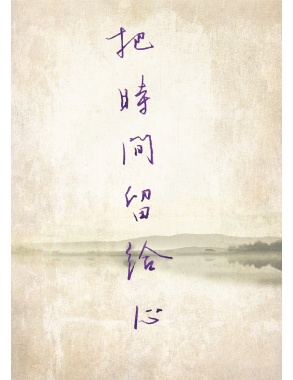 把時間留給心